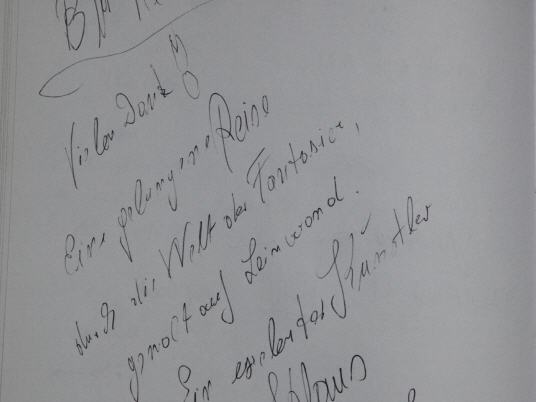 Vielen Dank
Eine gelungene Reise
durch die Welt der Fantasie,
gemalt auf Leinwand.
Ein exelenter Künstler
Klaus